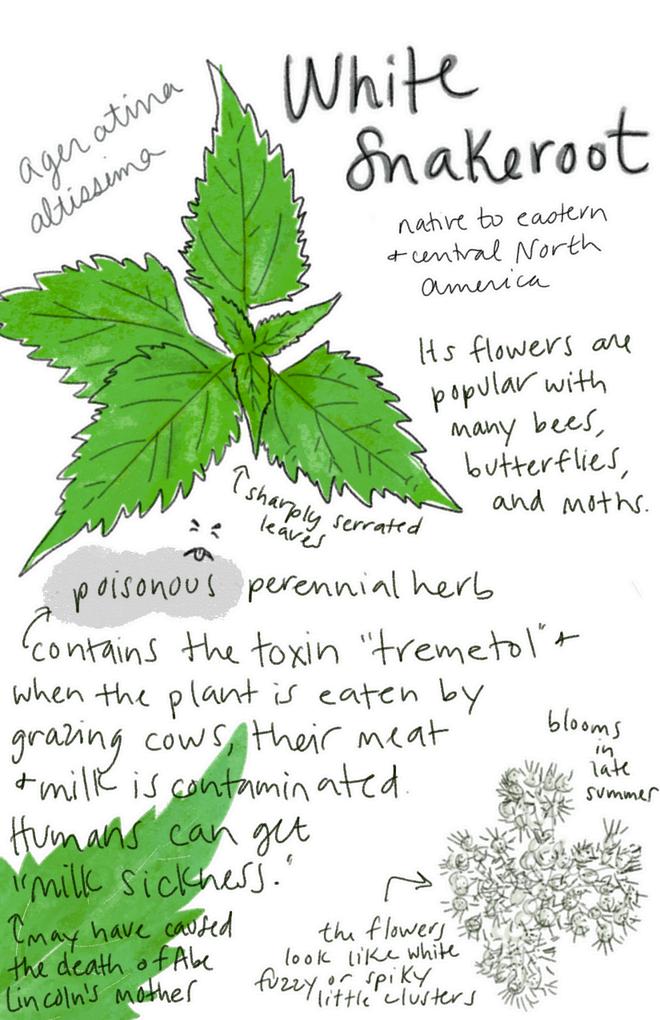 White
Snakeroot
ageratina
altissima
native to eastern
+ central North
America
Its flowers are
popular with
many bees,
butterflies,
and moths.
sharply serrated
leaves
poisonous perennial herb
contains the toxin "tremetol" +
when the plant is eaten by
grazing cows, their meat
+ milk is contaminated.
Humans can get
"milk sickness."
may have caused
the death of Abe
Lincoln's mother
blooms
in
late
summer
the flowers
look like white
fuzzy or spiky
little clusters